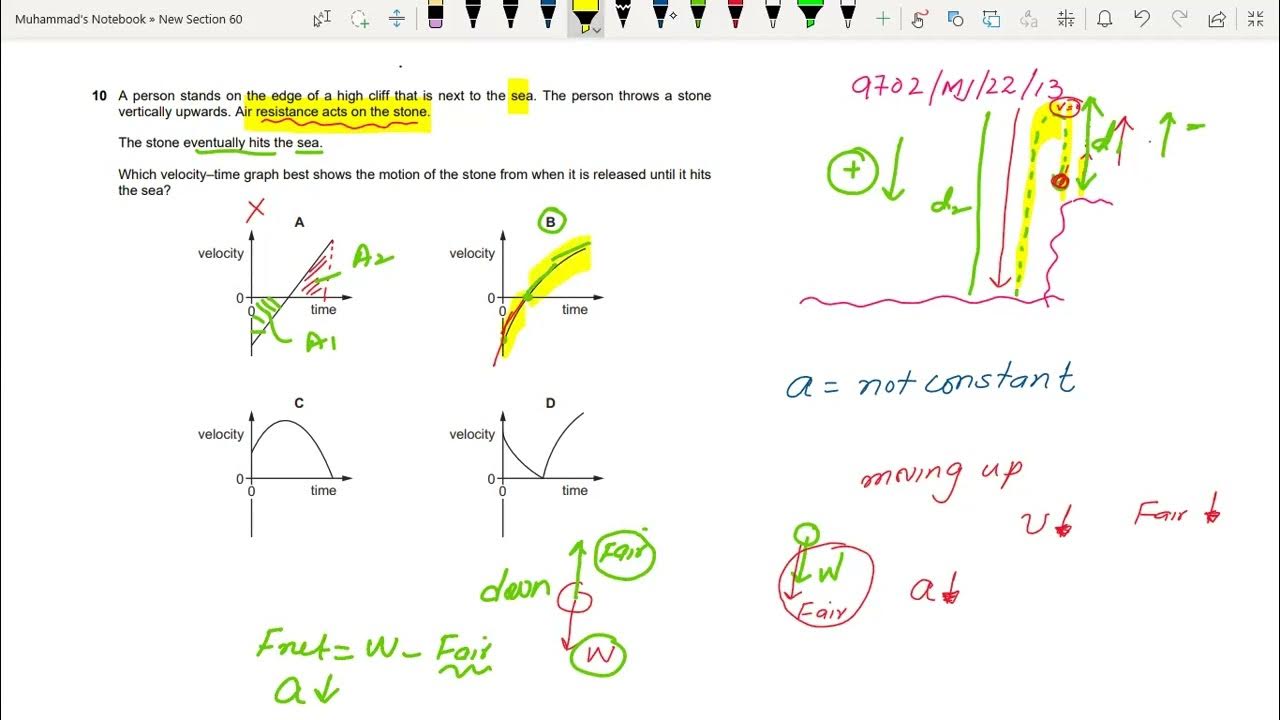 Muhammad's Notebook » New Section 60
9702/MJ/22/13
10 A person stands on the edge of a high cliff that is next to the sea. The person throws a stone
vertically upwards. Air resistance acts on the stone.
The stone eventually hits the sea.
Which velocity–time graph best shows the motion of the stone from when it is released until it hits
the sea?
X
A
velocity
0
0
time
A1
A2
B
velocity
0
0
time
C
velocity
0
0
time
D
velocity
0
0
time
+
d2
d
-
a = not constant
moving up
v↓ Fair ↓
W
Fair
a↓
down
Fair
W
Fnet = W - Fair
a ↓